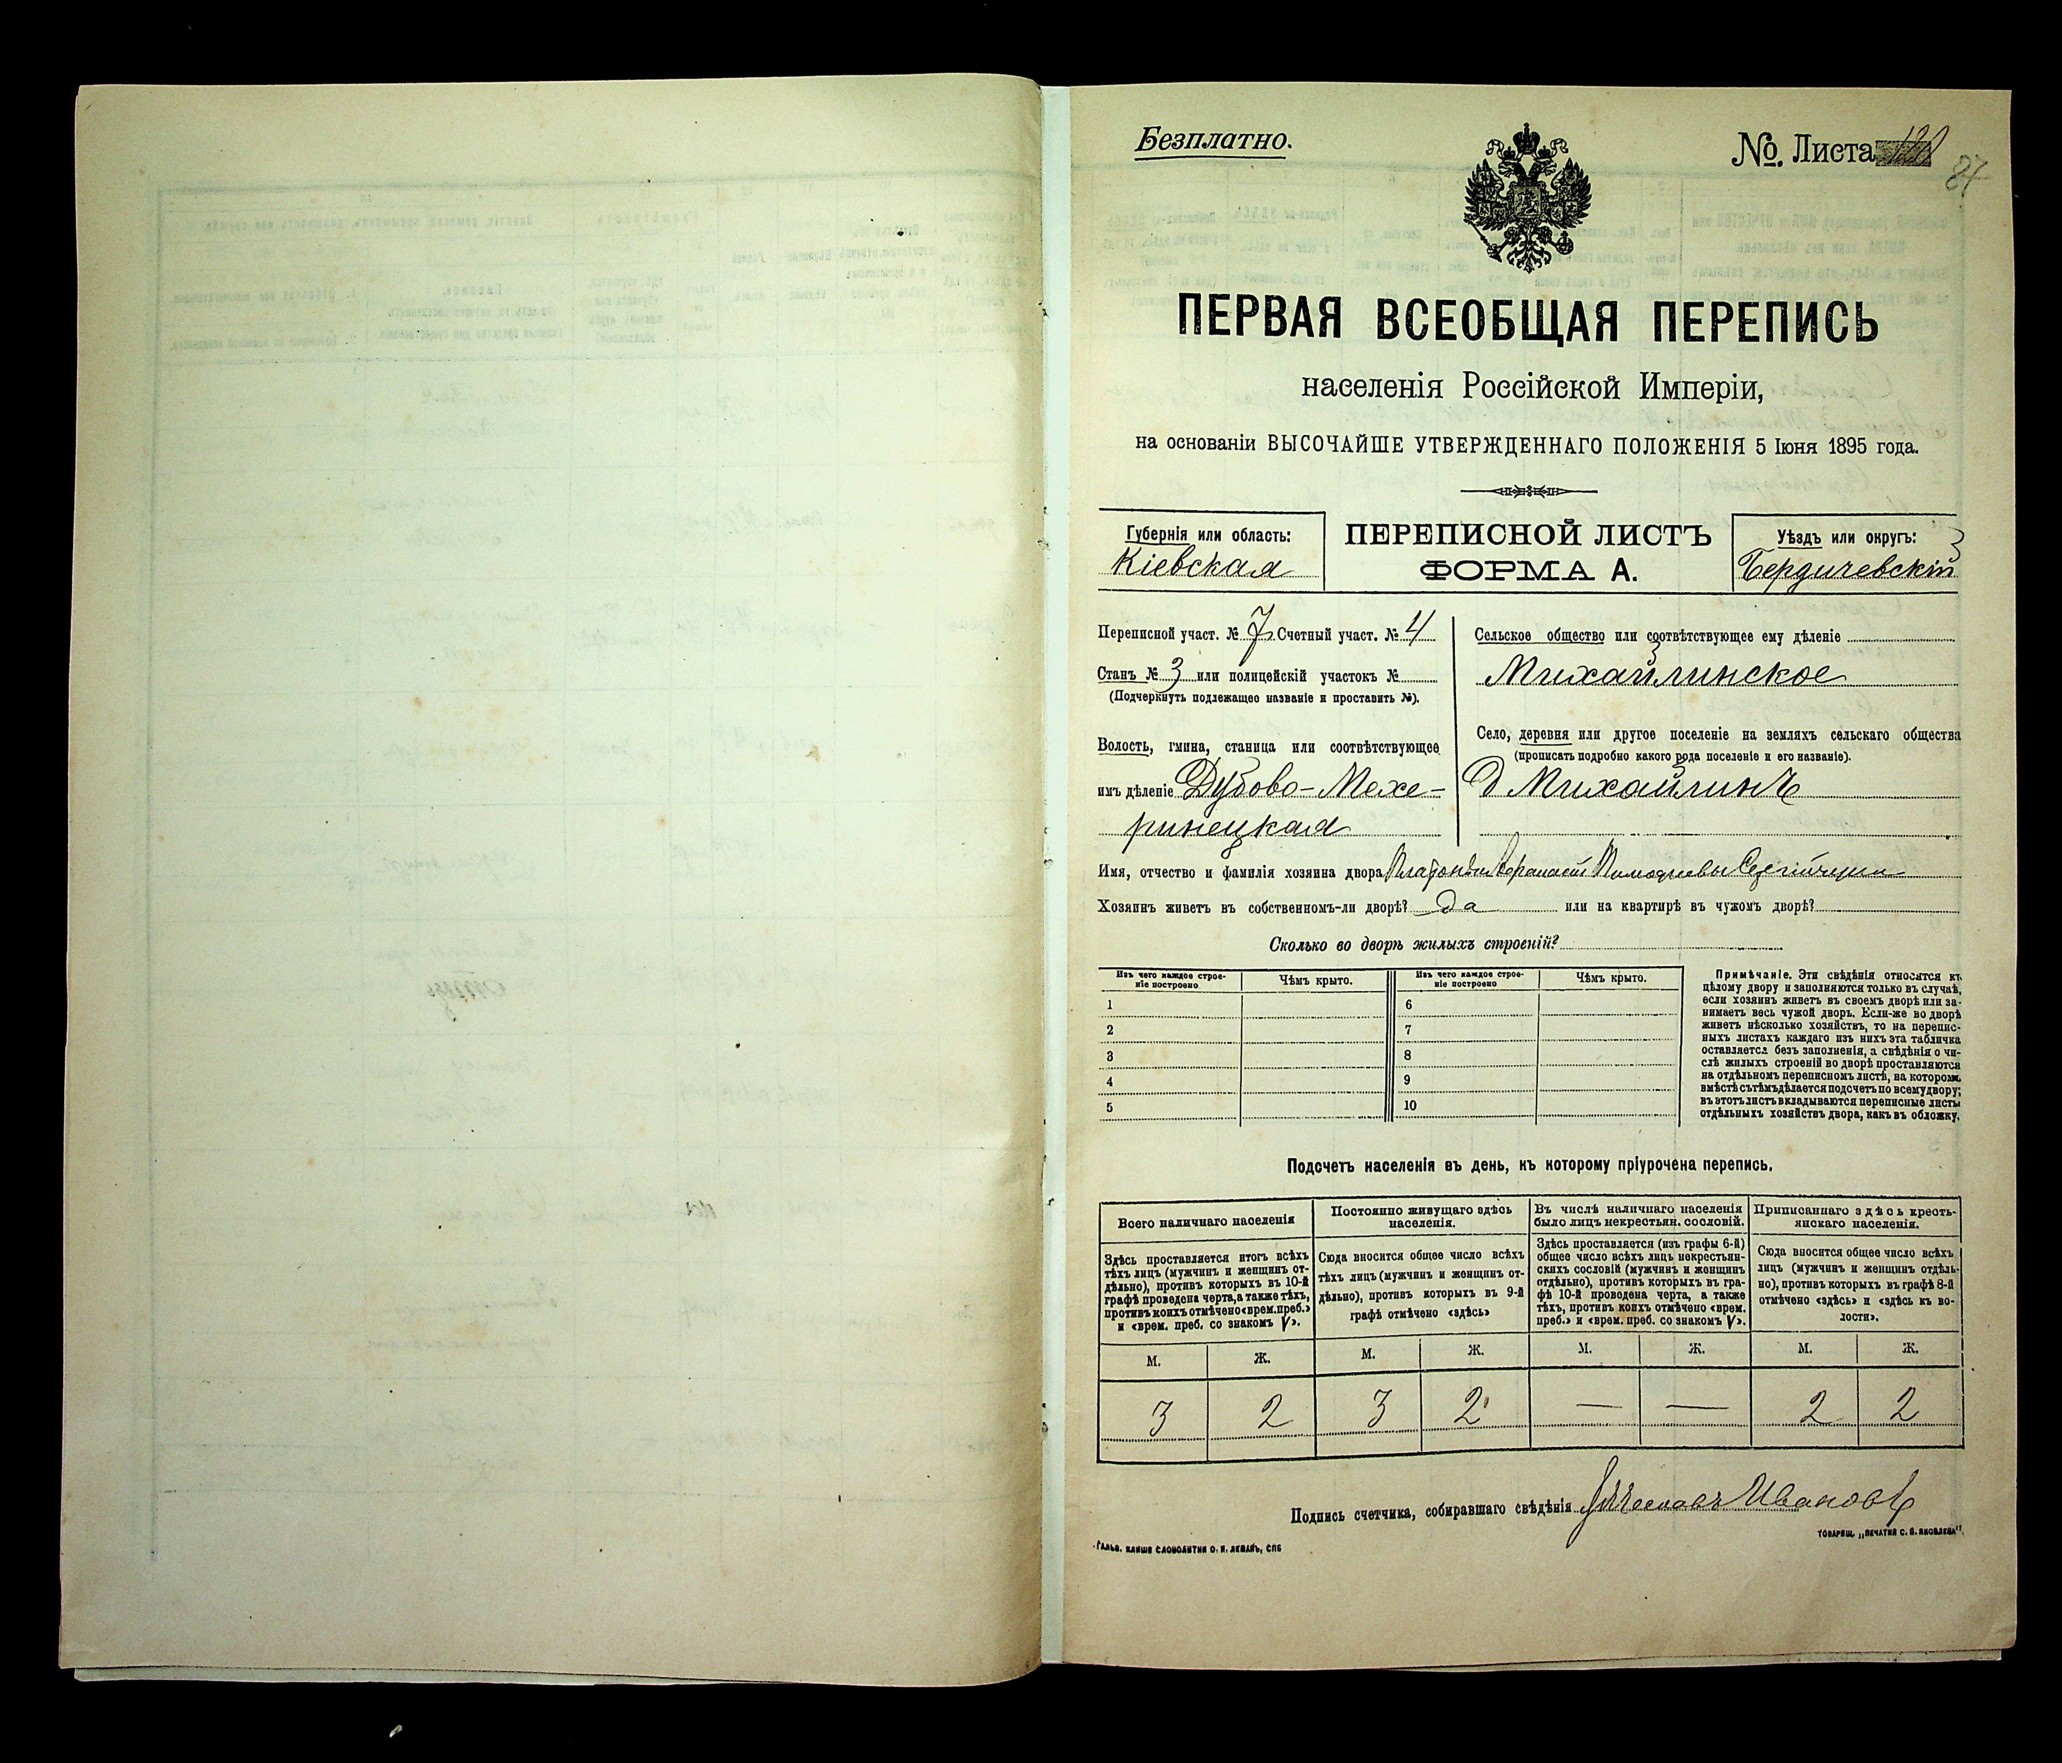 Безплатно.
№. Листа
84
ПЕРВАЯ ВСЕОБЩАЯ ПЕРЕПИСЬ
населенія Россійской Имперіи,
на основаніи ВЫСОЧАЙШЕ УТВЕРЖДЕННАГО ПОЛОЖЕНІЯ 5 Іюня 1895 года.
Губернія или область:
Кіевская
ПЕРЕПИСНОЙ ЛИСТЪ
ФОРМА А.
Уѣздъ или округъ:
Бердичевскій
Переписной участ. № 7 Счетный участ. № 4
Станъ № 3 или полицейскій участокъ №
(Подчеркнуть подлежащее названіе и проставить №).
Волость, гмина, станица или соотвѣтствующее
имъ дѣленіе Дубово-Мехе-
ринецкая
Сельское общество или соотвѣтствующее ему дѣленіе
Михайлинское
Село, деревня или другое поселеніе на земляхъ сельскаго общества
(прописать подробно какого рода поселеніе и его названіе).
д Михайлинъ
Имя, отчество и фамилія хозяина двора
Хозяинъ живетъ въ собственномъ-ли дворѣ? Да или на квартирѣ въ чужомъ дворѣ?
Сколько во дворѣ жилыхъ строеній?
Изъ чего каждое строе-
ніе построено
Чѣмъ крыто.
Изъ чего каждое строе-
ніе построено
Чѣмъ крыто.
1 6
2 7
3 8
4 9
5 10
Примѣчаніе. Эти свѣдѣнія относятся къ
цѣлому двору и заполняются только въ случаѣ,
если хозяинъ живетъ въ своемъ дворѣ или за-
нимаетъ весь чужой дворъ. Если-же во дворѣ
живетъ нѣсколько хозяйствъ, то на перепис-
ныхъ листахъ каждаго изъ нихъ эта табличка
оставляется безъ заполненія, а свѣдѣнія о чи-
слѣ жилыхъ строеній во дворѣ проставляются
на отдѣльномъ переписномъ листѣ, на которомъ
вмѣстѣ съ тѣмъ дѣлается подсчетъ по всему двору;
въ этотъ листъ вкладываются переписные листы
отдѣльныхъ хозяйствъ двора, какъ въ обложку.
Подсчетъ населенія въ день, къ которому пріурочена перепись.
Всего наличнаго населенія
Здѣсь проставляется итогъ всѣхъ
тѣхъ лицъ (мужчинъ и женщинъ от-
дѣльно), противъ которыхъ въ 10-й
графѣ проведена черта, а также тѣхъ,
противъ коихъ отмѣчено «врем. преб.»
и «врем. преб. со знакомъ V».
Постоянно живущаго здѣсь
населенія.
Сюда вносится общее число всѣхъ
тѣхъ лицъ (мужчинъ и женщинъ от-
дѣльно), противъ которыхъ въ 9-й
графѣ отмѣчено «здѣсь»
Въ числѣ наличнаго населенія
было лицъ некрестьян. сословій.
Здѣсь проставляется (изъ графы 6-й)
общее число всѣхъ лицъ некрестьян-
скихъ сословій (мужчинъ и женщинъ
отдѣльно), противъ которыхъ въ гра-
фѣ 10-й проводена черта, а также
тѣхъ, противъ коихъ отмѣчено «врем.
преб.» и «врем. преб. со знакомъ V».
Приписаннаго здѣсь кресть-
янскаго населенія.
Сюда вносится общее число всѣхъ
лицъ (мужчинъ и женщинъ отдѣль-
но), противъ которыхъ въ графѣ 8-й
отмѣчено «здѣсь» и «здѣсь къ во-
лости».
М. Ж. М. Ж. М. Ж. М. Ж.
3 2 3 2 — — 2 2
Подпись счетчика, собиравшаго свѣдѣнія Ивановъ
Гальв. клише словолитни О. И. Леманъ, СПБ
Товарищ. „Печатня С. П. Яковлева“.